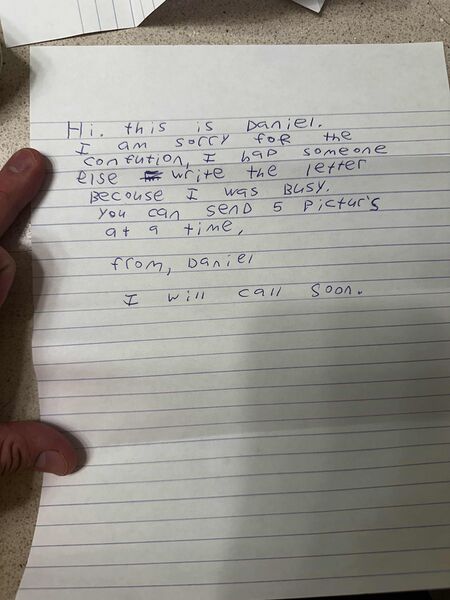 Hi. this is Daniel.
I am sorry for the
confution, I had someone
else write the letter
Becouse I was Busy.
You can send 5 Pictur's
at a time.
from, Daniel
I will call soon.